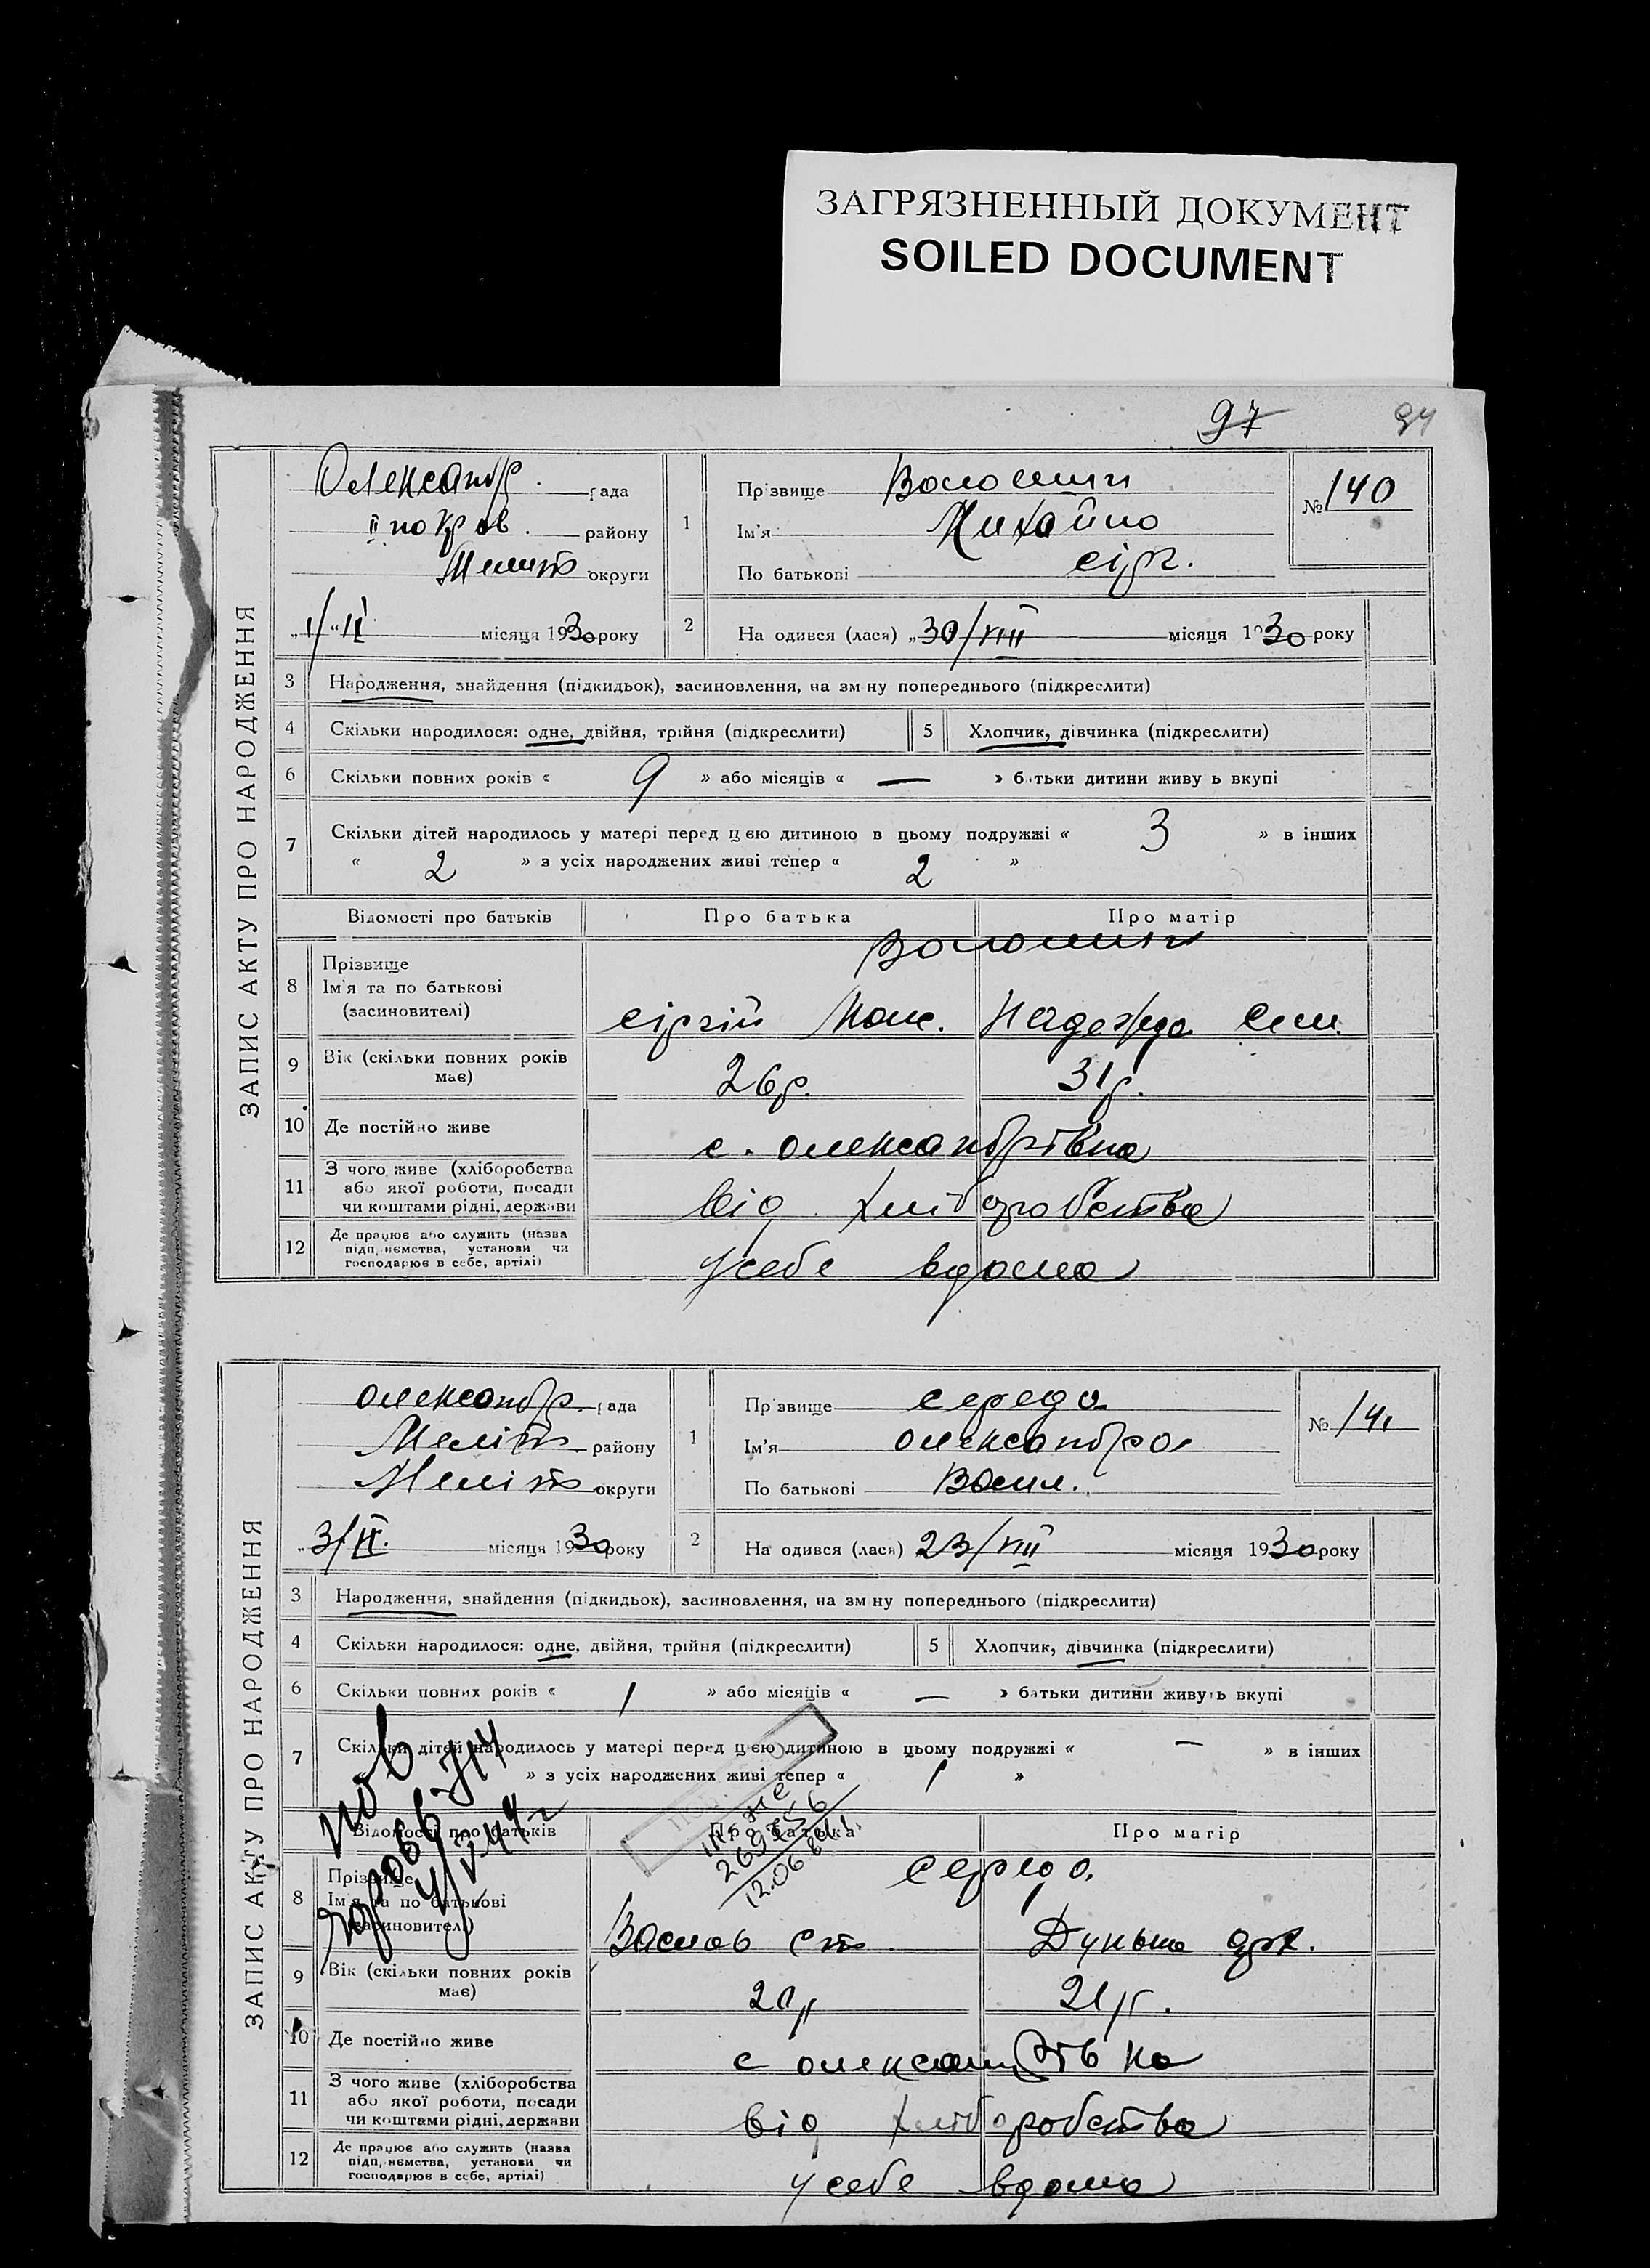 ЗАГРЯЗНЕННЫЙ ДОКУМЕНТ
SOILED DOCUMENT
97 94
ЗАПИС АКТУ ПРО НАРОДЖЕННЯ
Олександр. рада
ІІ покров. району
Мелит округи
„1/"ІХ місяця 1930 року
1
Прізвище Волошин
Ім'я Михайло
По батькові Сірг.
№ 140
2 На одився (лася) „30/VIII місяця 1930 року
3 Народження, знайдення (підкидьок), засиновлення, на зм ну попереднього (підкреслити)
4 Скільки народилося: одне, двійня, трійня (підкреслити) 5 Хлопчик, дівчинка (підкреслити)
6 Скільки повних років « 9 » або місяців « — » батьки дитини живу ь вкупі
7 Скільки дітей народилось у матері перед цією дитиною в цьому подружжі « 3 » в інших
« 2 » з усіх народжених живі тепер « 2 »
Відомості про батьків Про батька Про матір
Волошин
8 Прізвище
Ім'я та по батькові
(засиновителі)
Сіргій Надежда Сем.
9 Вік (скільки повних років
має)
26р. 31р.
10 Де постійно живе с. Олександрівка
11 З чого живе (хліборобства
або якої роботи, посади
чи коштами рідні, держави
від хліборобства
12 Де працює або служить (назва
підп иємства, установи чи
господарює в себе, артілі)
у себе вдома
ЗАПИС АКТУ ПРО НАРОДЖЕННЯ
Олександр. рада
Меліт району
Меліт округи
„3/ІХ. місяця 1930 року
1
Прізвище Середа
Ім'я Олександра
По батькові Васил.
№ 141
2 На одився (лася) 23/VIII місяця 1930 року
3 Народження, знайдення (підкидьок), засиновлення, на зм ну попереднього (підкреслити)
4 Скільки народилося: одне, двійня, трійня (підкреслити) 5 Хлопчик, дівчинка (підкреслити)
6 Скільки повних років « 1 » або місяців « — » батьки дитини живуть вкупі
7 Скільки дітей народилось у матері перед цією дитиною в цьому подружжі « — » в інших
» з усіх народжених живі тепер « 1 »
Відомості про батьків Про батька Про матір
Середа
8 Прізвище
Ім'я та по батькові
(засиновителі)
Ст. Дунька
9 Вік (скільки повних років
має)
21р.
10 Де постійно живе с Олександрівка
11 З чого живе (хліборобства
або якої роботи, посади
чи коштами рідні, держави
від хліборобства
12 Де працює або служить (назва
підп иємства, установи чи
господарює в себе, артілі)
у себе вдома